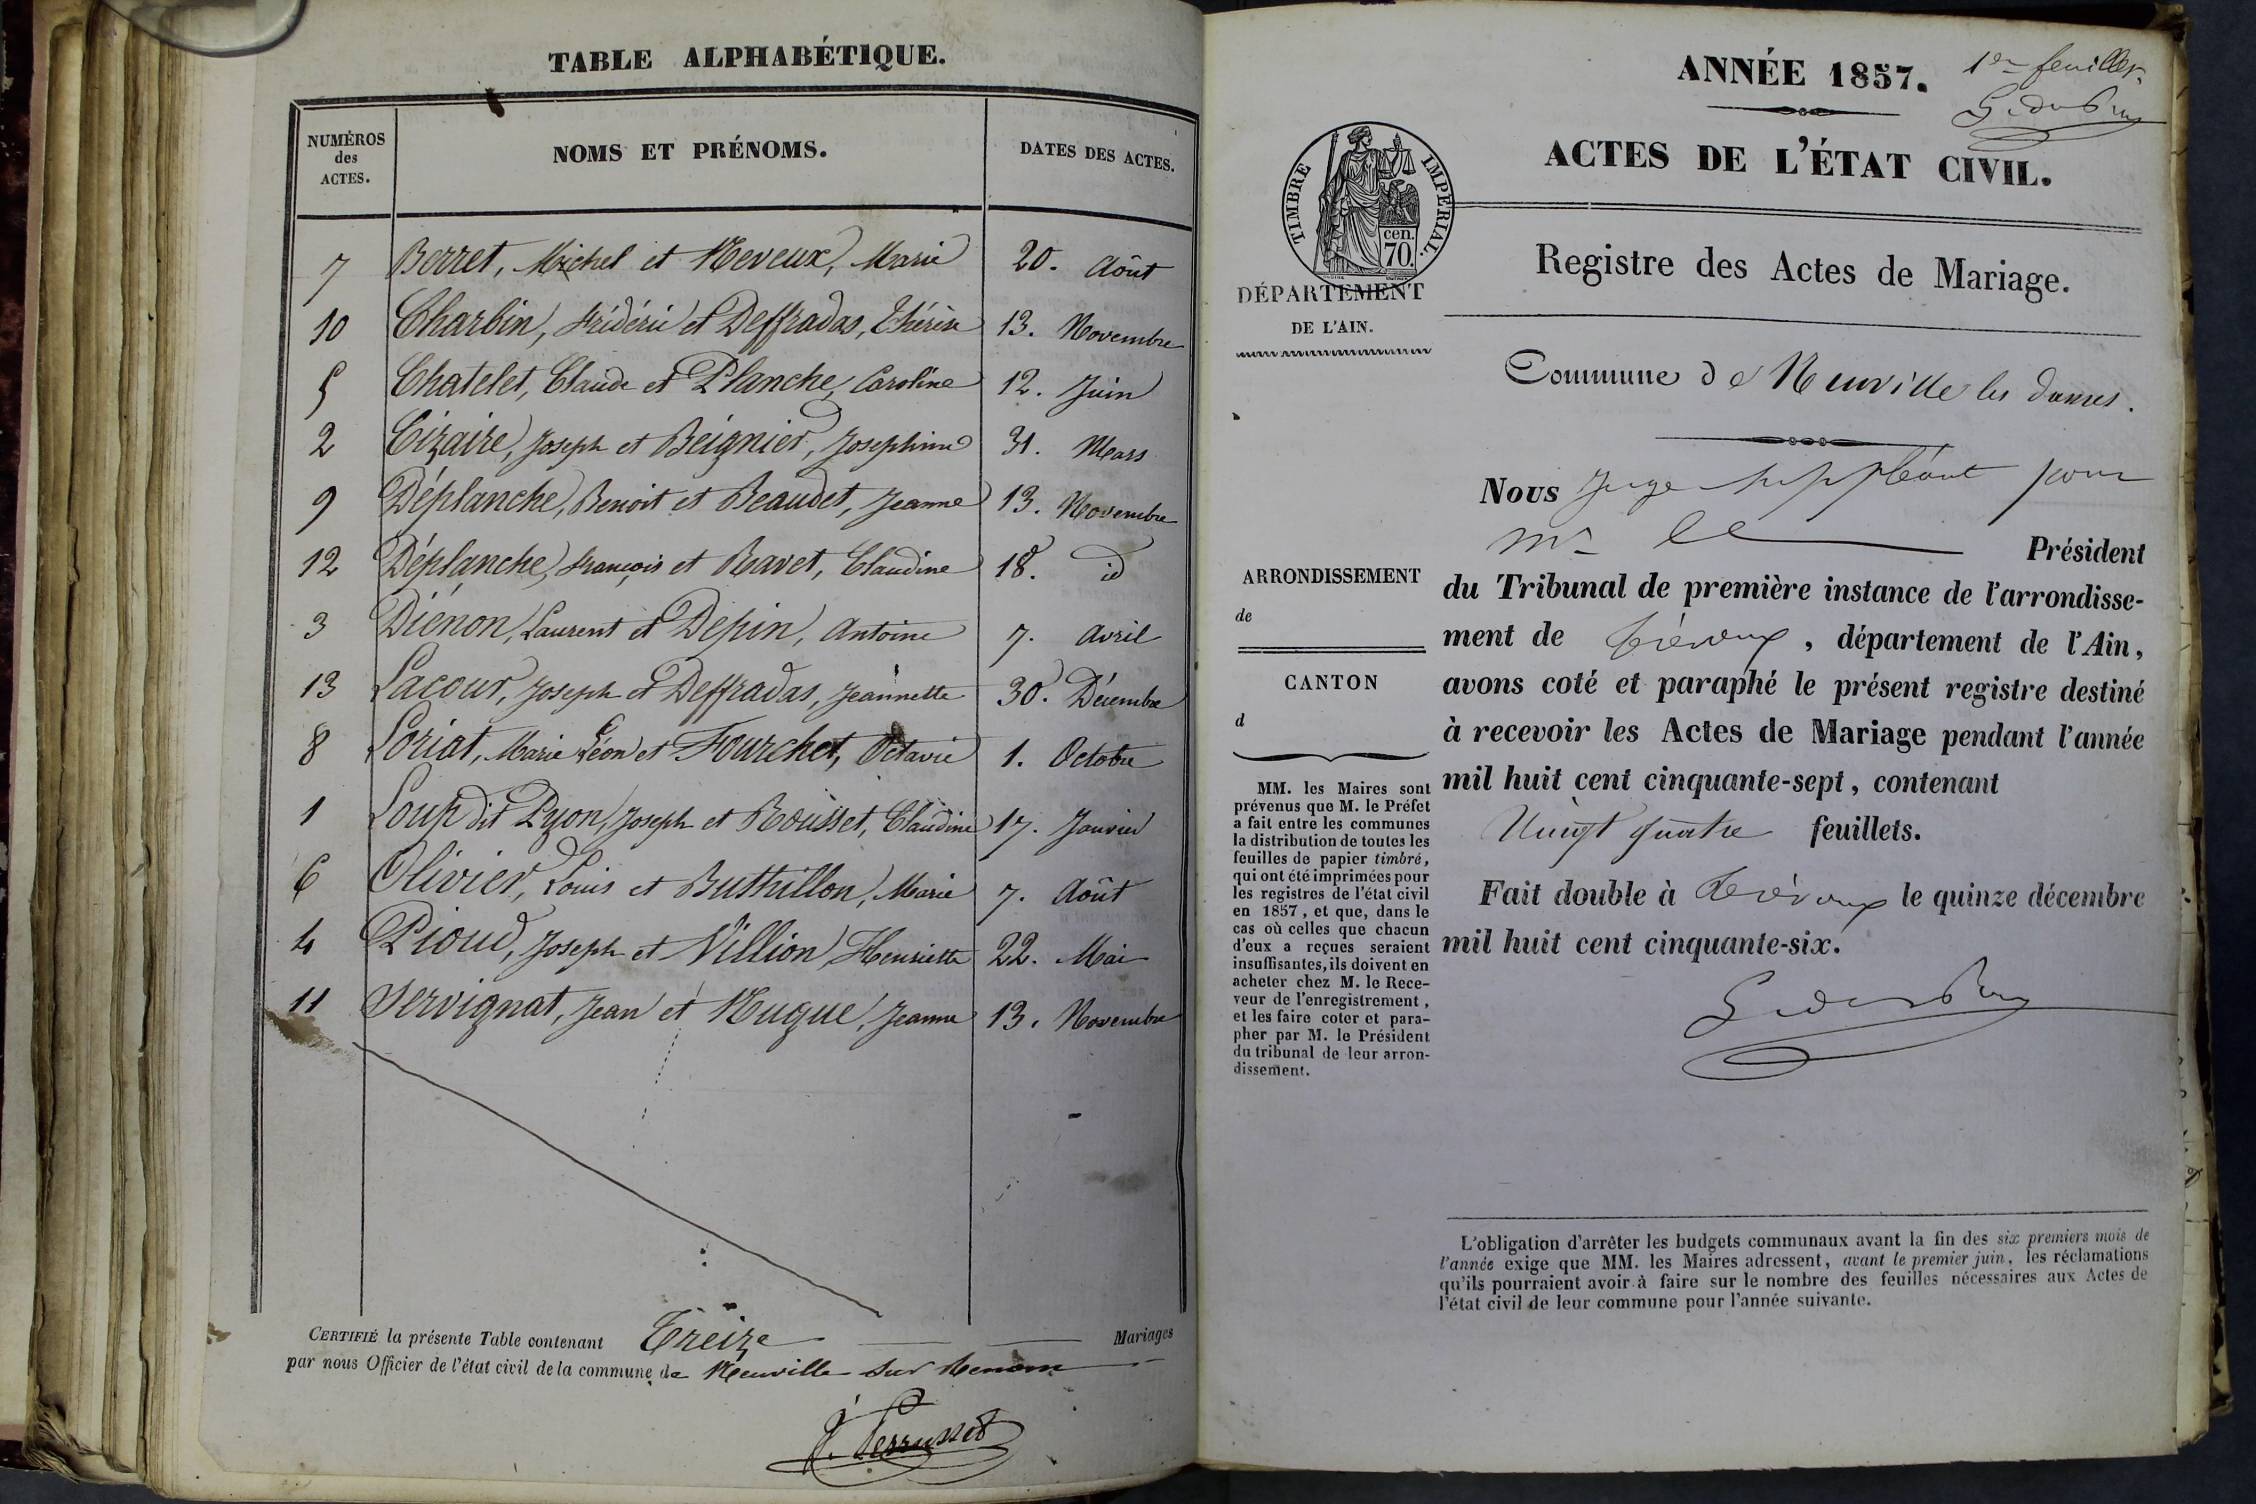 TABLE ALPHABÉTIQUE.
NUMÉROS des ACTES.
NOMS ET PRÉNOMS.
DATES DES ACTES.
7 Berret, Michel et Neveux, Marie 20. Août
10 Charbin, Frédéric et Deffradas, Thérèse 13. Novembre
5 Chatelet, Claude et Planche, Caroline 12. Juin
2 Cizaire, Joseph et Beignier, Josephine 31. Mars
9 Déplanche, Benoit et Beaudet, Jeanne 13. Novembre
12 Déplanche, François et Ravet, Claudine 18. id
3 Diénon, Laurent et Depin, Antoine 7. Avril
13 Lacour, Joseph et Deffradas, Jeannette 30. Décembre
8 Loriat, Marie Léon et Fourchet, Octavie 1. Octobre
1 Loup dit Pyon, Joseph et Rousset, Claudine 17. Janvier
6 Olivier, Louis et Buthillon, Marie 7. Août
4 Pioud, Joseph et Villion, Henriette 22. Mai
11 Servignat, Jean et Nugue, Jeanne 13. Novembre
CERTIFIÉ la présente Table contenant Treize Mariages
par nous Officier de l'état civil de la commune de Neuville sur Renom
1er feuillet.
ANNÉE 1857.
ACTES DE L'ÉTAT CIVIL.
TIMBRE IMPERIAL.
cen.
70.
DÉPARTEMENT
DE L'AIN.
Registre des Actes de Mariage.
Commune de Neuville les Dames.
Nous Juge suppléant pour
Mr le Président
du Tribunal de première instance de l'arrondisse-
ment de Trévoux, département de l'Ain,
avons coté et paraphé le présent registre destiné
à recevoir les Actes de Mariage pendant l'année
mil huit cent cinquante-sept, contenant
Vingt quatre feuillets.
Fait double à Trévoux le quinze décembre
mil huit cent cinquante-six.
ARRONDISSEMENT
de
CANTON
d
MM. les Maires sont
prévenus que M. le Préfet
a fait entre les communes
la distribution de toutes les
feuilles de papier timbré,
qui ont été imprimées pour
les registres de l'état civil
en 1857, et que, dans le
cas où celles que chacun
d'eux a reçues seraient
insuffisantes, ils doivent en
acheter chez M. le Rece-
veur de l'enregistrement,
et les faire coter et para-
pher par M. le Président
du tribunal de leur arron-
dissement.
L'obligation d'arrêter les budgets communaux avant la fin des six premiers mois de
l'année exige que MM. les Maires adressent, avant le premier juin, les réclamations
qu'ils pourraient avoir à faire sur le nombre des feuilles nécessaires aux Actes de
l'état civil de leur commune pour l'année suivante.